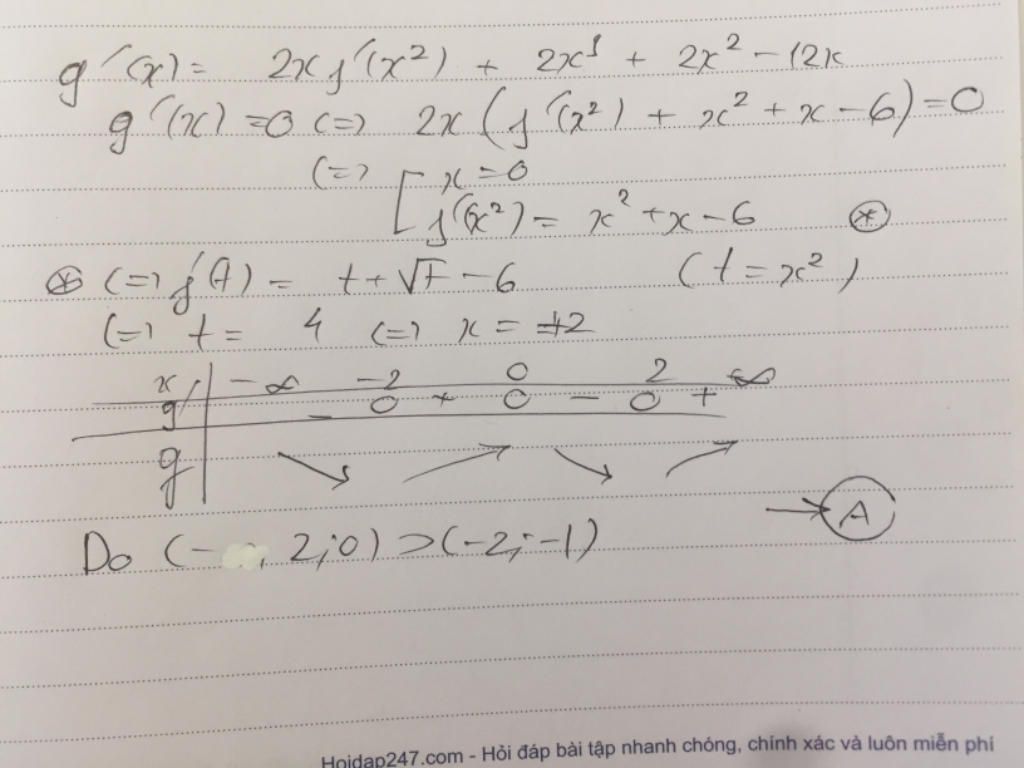 g'(x) = 2x f'(x²) + 2x³ + 2x² - 12x
g'(x) = 0 (=) 2x (f'(x²) + x² + x - 6) = 0
(=) [ x = 0
f'(x²) = x² + x - 6 (*)
(*) (=) f'(t) = t + √t - 6 (t = x²)
(=) t = 4 (=) x = ±2
x | -∞ -2 0 2 +∞
g' | - 0 + 0 - 0 +
g | ↘ ↗ ↘ ↗
→ A
Do (- 2; 0) ⊃ (-2; -1)
Hoidap247.com - Hỏi đáp bài tập nhanh chóng, chính xác và luôn miễn phí